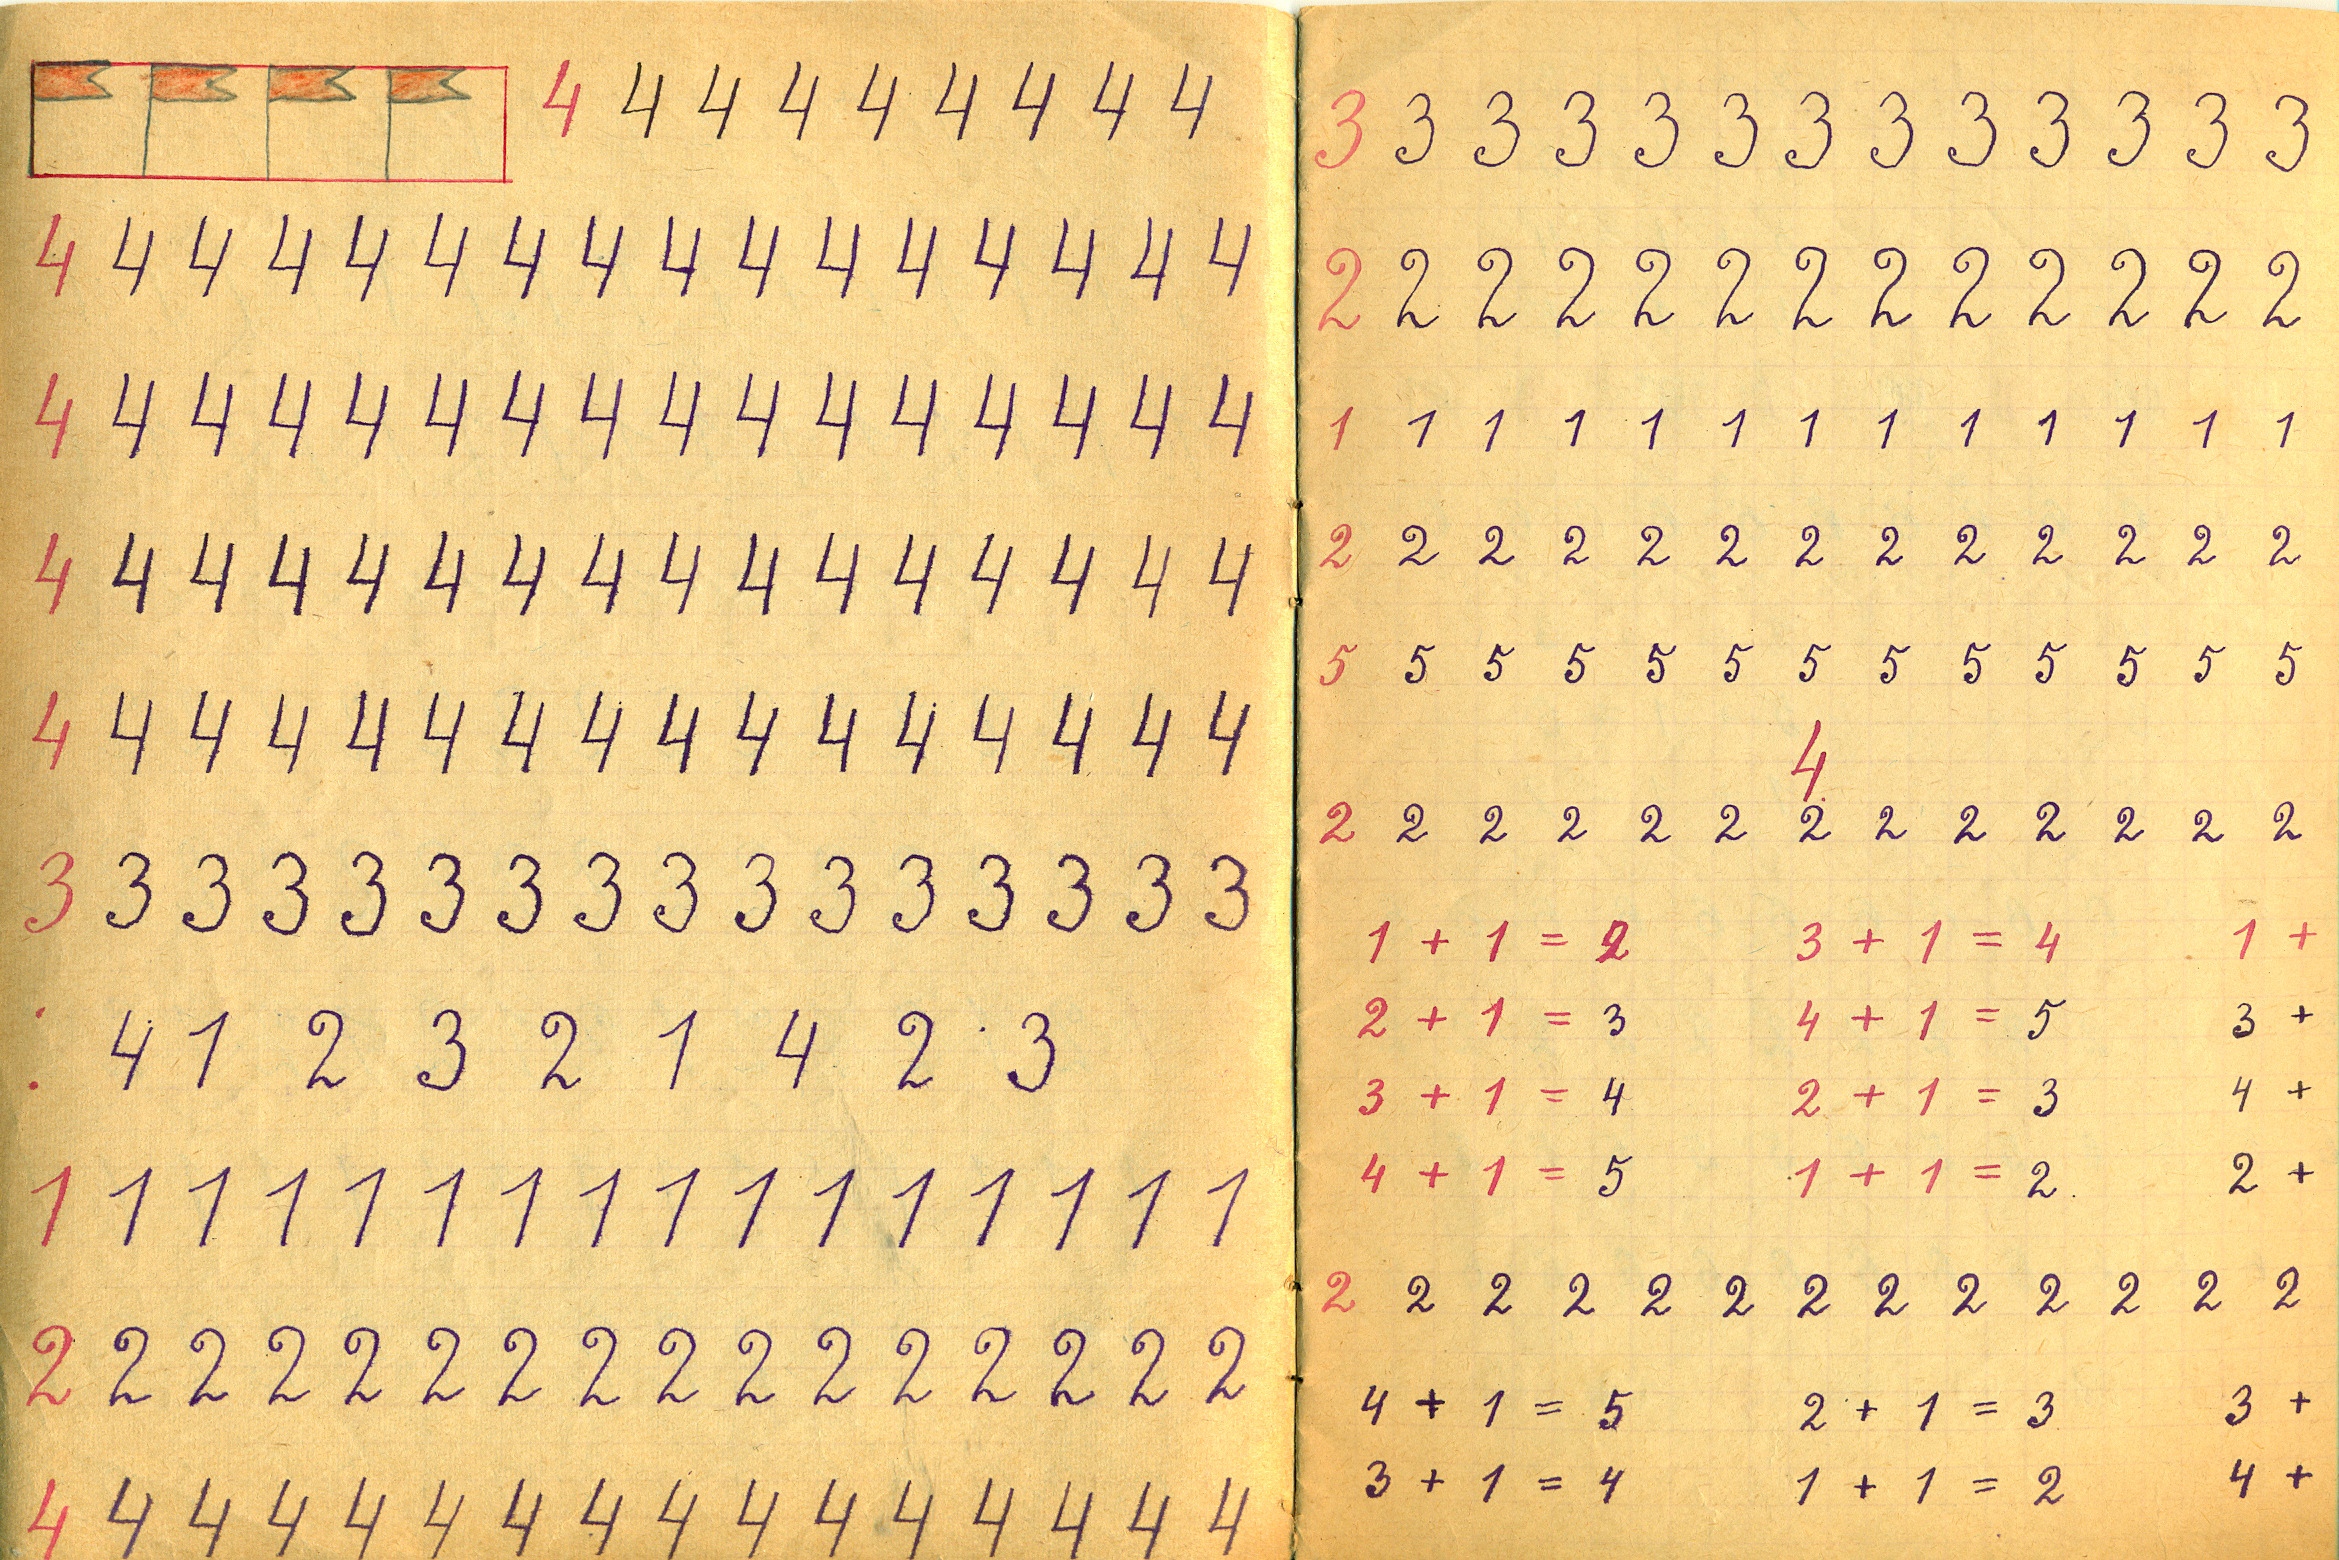 4 4 4 4 4 4 4 4 4
4 4 4 4 4 4 4 4 4 4 4 4 4 4 4 4
4 4 4 4 4 4 4 4 4 4 4 4 4 4 4 4
4 4 4 4 4 4 4 4 4 4 4 4 4 4 4 4
4 4 4 4 4 4 4 4 4 4 4 4 4 4 4 4
3 3 3 3 3 3 3 3 3 3 3 3 3 3 3 3
: 4 1 2 3 2 1 4 2 3
1 1 1 1 1 1 1 1 1 1 1 1 1 1 1 1
2 2 2 2 2 2 2 2 2 2 2 2 2 2 2 2
4 4 4 4 4 4 4 4 4 4 4 4 4 4 4 4
3 3 3 3 3 3 3 3 3 3 3 3 3
2 2 2 2 2 2 2 2 2 2 2 2 2
1 1 1 1 1 1 1 1 1 1 1 1 1
2 2 2 2 2 2 2 2 2 2 2 2 2
5 5 5 5 5 5 5 5 5 5 5 5 5
4
2 2 2 2 2 2 2 2 2 2 2 2 2
1 + 1 = 2 3 + 1 = 4 1 +
2 + 1 = 3 4 + 1 = 5 3 +
3 + 1 = 4 2 + 1 = 3 4 +
4 + 1 = 5 1 + 1 = 2 2 +
2 2 2 2 2 2 2 2 2 2 2 2 2
4 + 1 = 5 2 + 1 = 3 3 +
3 + 1 = 4 1 + 1 = 2 4 +